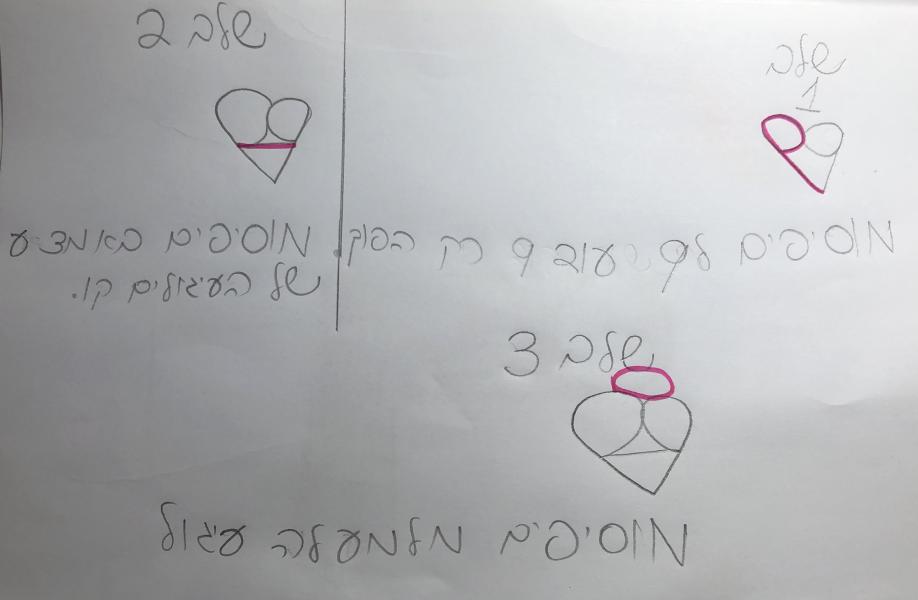 שלב
1
מוסיפים לק עוב ף רק הפוך
שלב 2
מוסיפים באמצע
של העיגולים קו.
שלב 3
מוסיפים מלמעלה עיגול